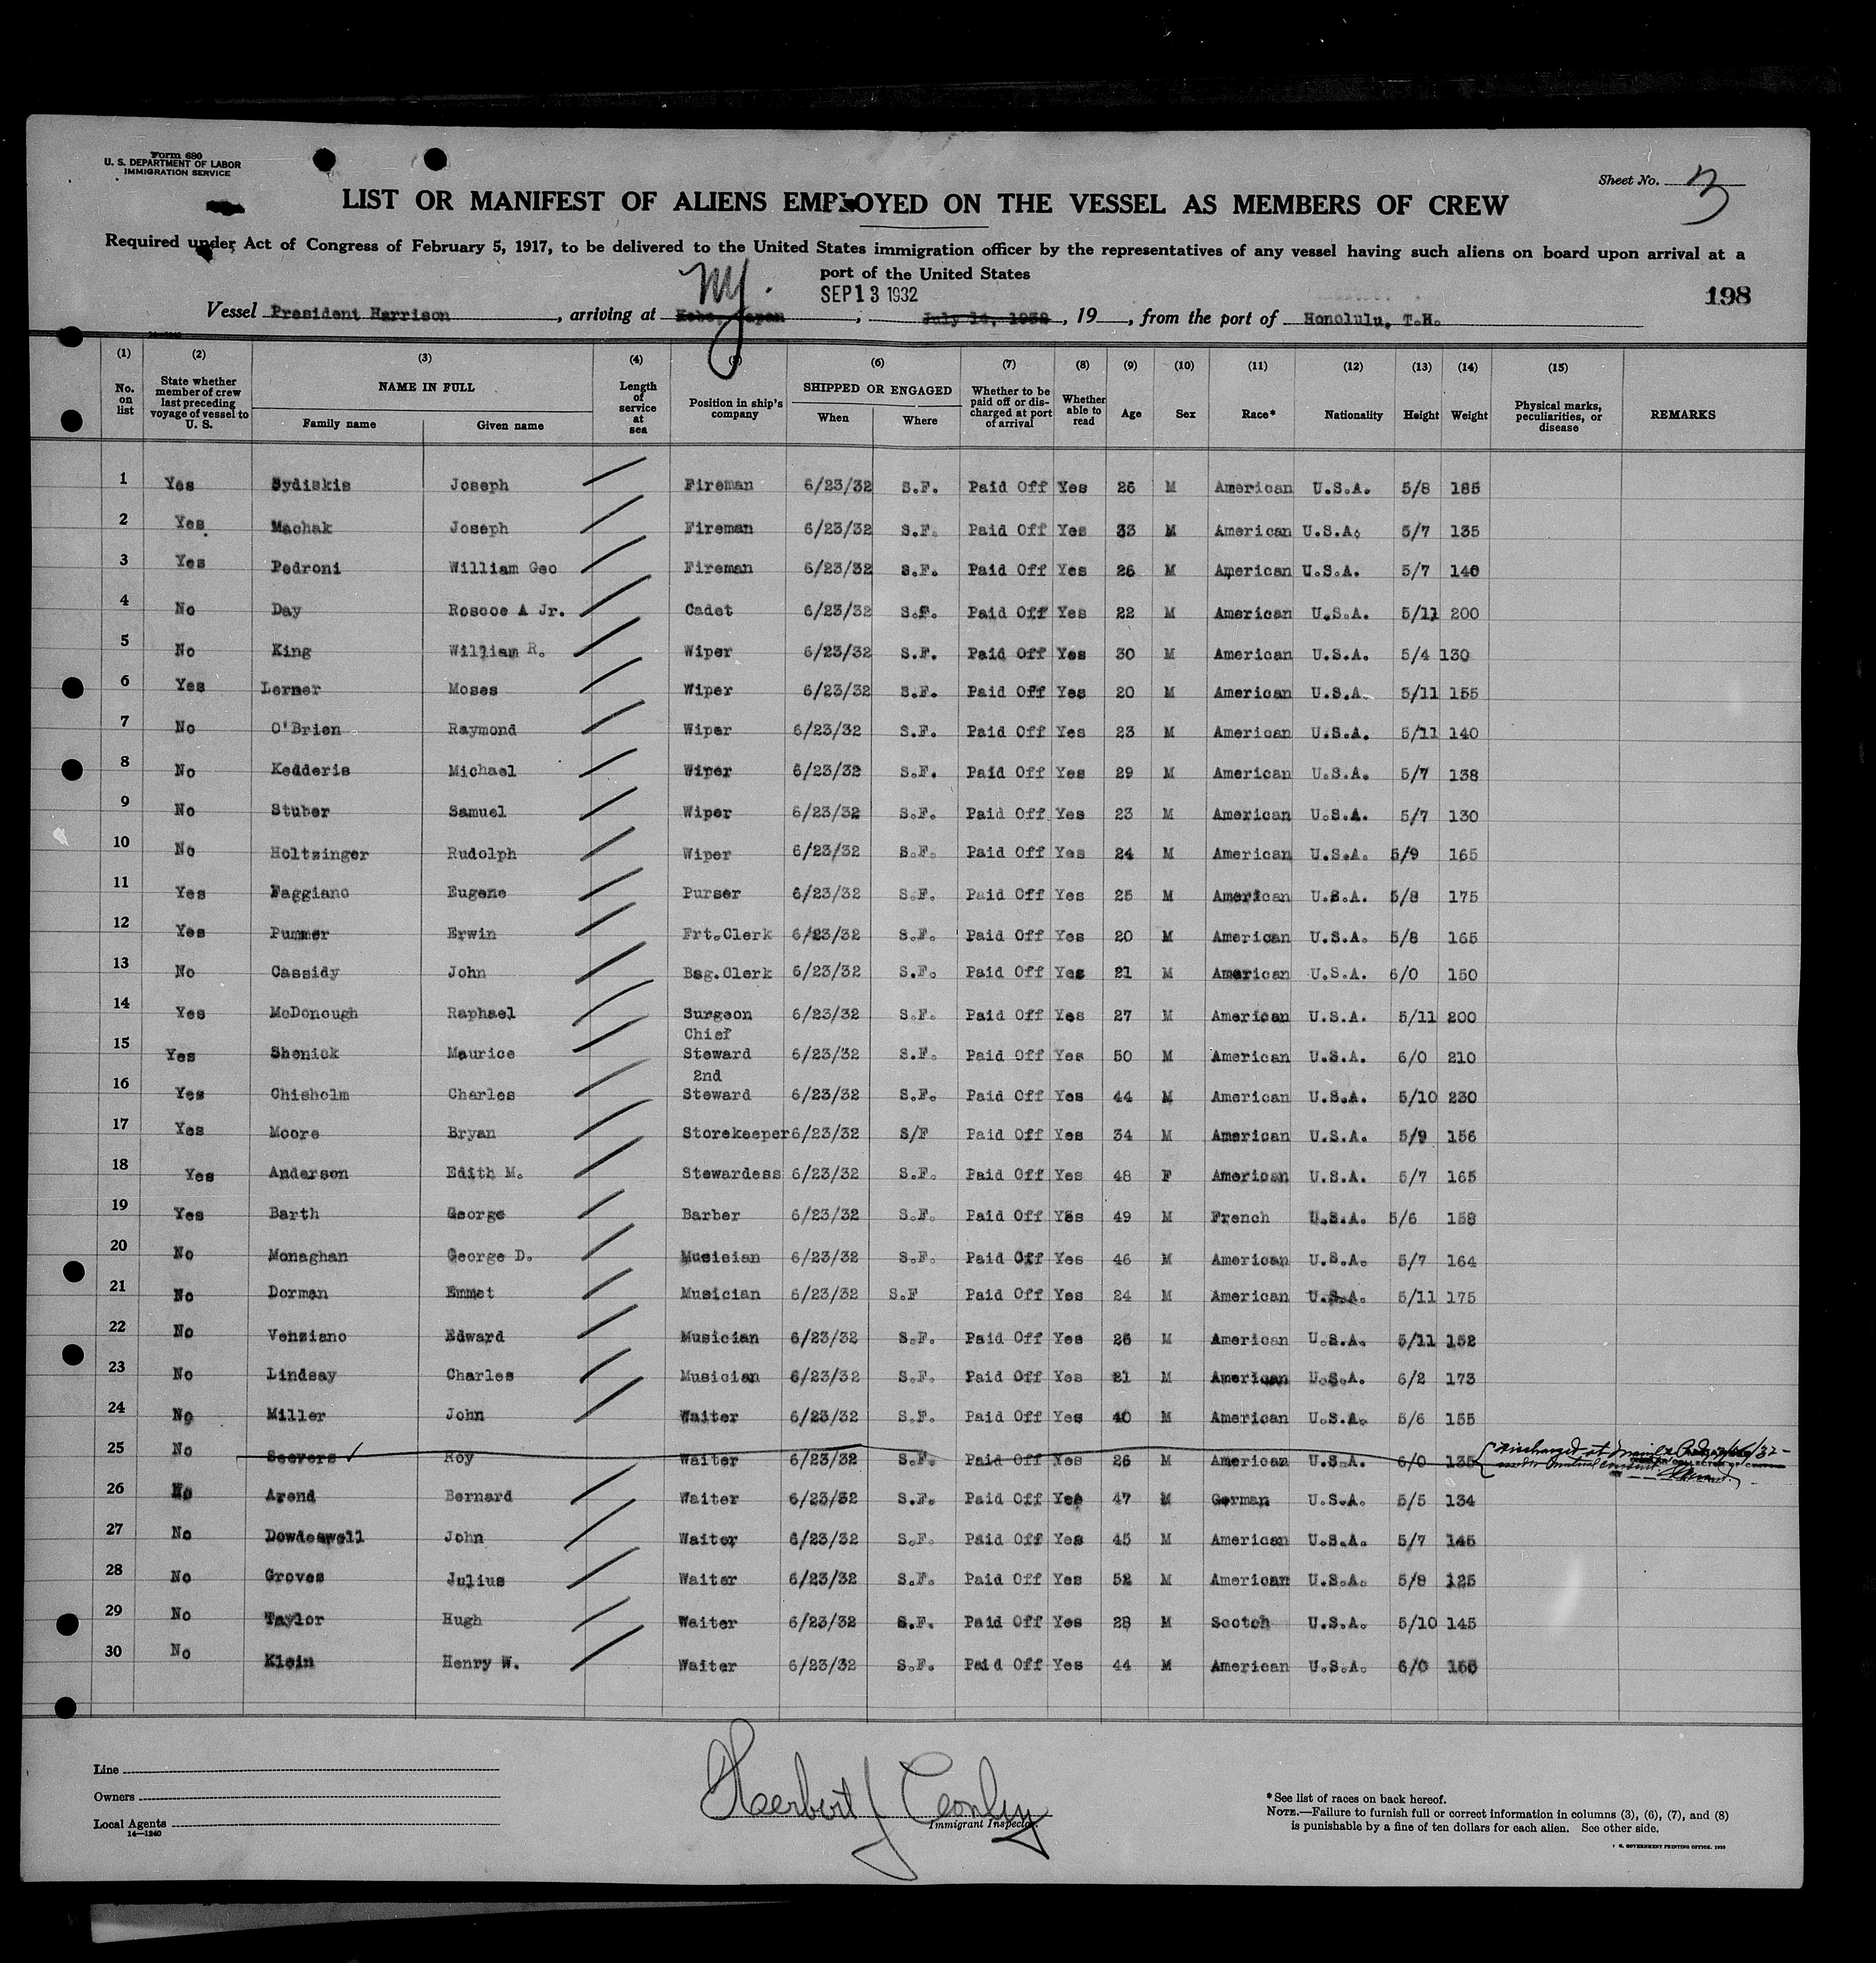 Form 680
U. S. DEPARTMENT OF LABOR
IMMIGRATION SERVICE
Sheet No. 3
LIST OR MANIFEST OF ALIENS EMPLOYED ON THE VESSEL AS MEMBERS OF CREW
Required under Act of Congress of February 5, 1917, to be delivered to the United States immigration officer by the representatives of any vessel having such aliens on board upon arrival at a
port of the United States
NY.
SEP 13 1932
198
Vessel President Harrison, arriving at Kobe, Japan, July 14, 1932, 19, from the port of Honolulu, T.H.
(1) (2) (3) (4) (5) (6) (7) (8) (9) (10) (11) (12) (13) (14) (15)
No. on list State whether member of crew last preceding voyage of vessel to U. S. NAME IN FULL Family name Given name Length of service at sea Position in ship's company SHIPPED OR ENGAGED When Where Whether to be paid off or discharged at port of arrival Whether able to read Age Sex Race* Nationality Height Weight Physical marks, peculiarities, or disease REMARKS
1 Yes Sydiskis Joseph Fireman 6/23/32 S.F. Paid Off Yes 26 M American U.S.A. 5/8 185
2 Yes Machak Joseph Fireman 6/23/32 S.F. Paid Off Yes 33 M American U.S.A. 5/7 135
3 Yes Pedroni William Geo Fireman 6/23/32 S.F. Paid Off Yes 26 M American U.S.A. 5/7 140
4 No Day Roscoe A Jr. Cadet 6/23/32 S.F. Paid Off Yes 22 M American U.S.A. 5/11 200
5 No King William R. Wiper 6/23/32 S.F. Paid Off Yes 30 M American U.S.A. 5/4 130
6 Yes Lerner Moses Wiper 6/23/32 S.F. Paid Off Yes 20 M American U.S.A. 5/11 155
7 No O'Brien Raymond Wiper 6/23/32 S.F. Paid Off Yes 23 M American U.S.A. 5/11 140
8 No Kedderis Michael Wiper 6/23/32 S.F. Paid Off Yes 29 M American U.S.A. 5/7 138
9 No Stuber Samuel Wiper 6/23/32 S.F. Paid Off Yes 23 M American U.S.A. 5/7 130
10 No Holtzinger Rudolph Wiper 6/23/32 S.F. Paid Off Yes 24 M American U.S.A. 5/9 165
11 Yes Faggiano Eugene Purser 6/23/32 S.F. Paid Off Yes 25 M American U.S.A. 5/8 175
12 Yes Pummer Erwin Frt.Clerk 6/23/32 S.F. Paid Off Yes 20 M American U.S.A. 5/8 165
13 No Cassidy John Bag.Clerk 6/23/32 S.F. Paid Off Yes 21 M American U.S.A. 6/0 150
14 Yes McDonough Raphael Surgeon 6/23/32 S.F. Paid Off Yes 27 M American U.S.A. 5/11 200
15 Yes Shenick Maurice Chief Steward 6/23/32 S.F. Paid Off Yes 50 M American U.S.A. 6/0 210
16 Yes Chisholm Charles 2nd Steward 6/23/32 S.F. Paid Off Yes 44 M American U.S.A. 5/10 230
17 Yes Moore Bryan Storekeeper 6/23/32 S/F Paid Off Yes 34 M American U.S.A. 5/9 156
18 Yes Anderson Edith M. Stewardess 6/23/32 S.F. Paid Off Yes 48 F American U.S.A. 5/7 165
19 Yes Barth George Barber 6/23/32 S.F. Paid Off Yes 49 M French U.S.A. 5/6 158
20 No Monaghan George D. Musician 6/23/32 S.F. Paid Off Yes 46 M American U.S.A. 5/7 164
21 No Dorman Emmet Musician 6/23/32 S.F Paid Off Yes 24 M American U.S.A. 5/11 175
22 No Venziano Edward Musician 6/23/32 S.F. Paid Off Yes 26 M American U.S.A. 5/11 152
23 No Lindsay Charles Musician 6/23/32 S.F. Paid Off Yes 21 M American U.S.A. 6/2 173
24 No Miller John Waiter 6/23/32 S.F. Paid Off Yes 40 M American U.S.A. 5/6 155
25 No Seevers Roy Waiter 6/23/32 S.F. Paid Off Yes 26 M American U.S.A. 6/0 135 Discharged at Manila
under mutual consent
26 No Arend Bernard Waiter 6/23/32 S.F. Paid Off Yes 47 M German U.S.A. 5/5 134
27 No Dowdeswell John Waiter 6/23/32 S.F. Paid Off Yes 45 M American U.S.A. 5/7 145
28 No Groves Julius Waiter 6/23/32 S.F. Paid Off Yes 52 M American U.S.A. 5/8 125
29 No Taylor Hugh Waiter 6/23/32 S.F. Paid Off Yes 28 M Scotch U.S.A. 5/10 145
30 No Klein Henry W. Waiter 6/23/32 S.F. Paid Off Yes 44 M American U.S.A. 6/0
Line
Owners
Local Agents
14—1240
Herbert J Conly
Immigrant Inspector.
* See list of races on back hereof.
NOTE.—Failure to furnish full or correct information in columns (3), (6), (7), and (8)
is punishable by a fine of ten dollars for each alien. See other side.